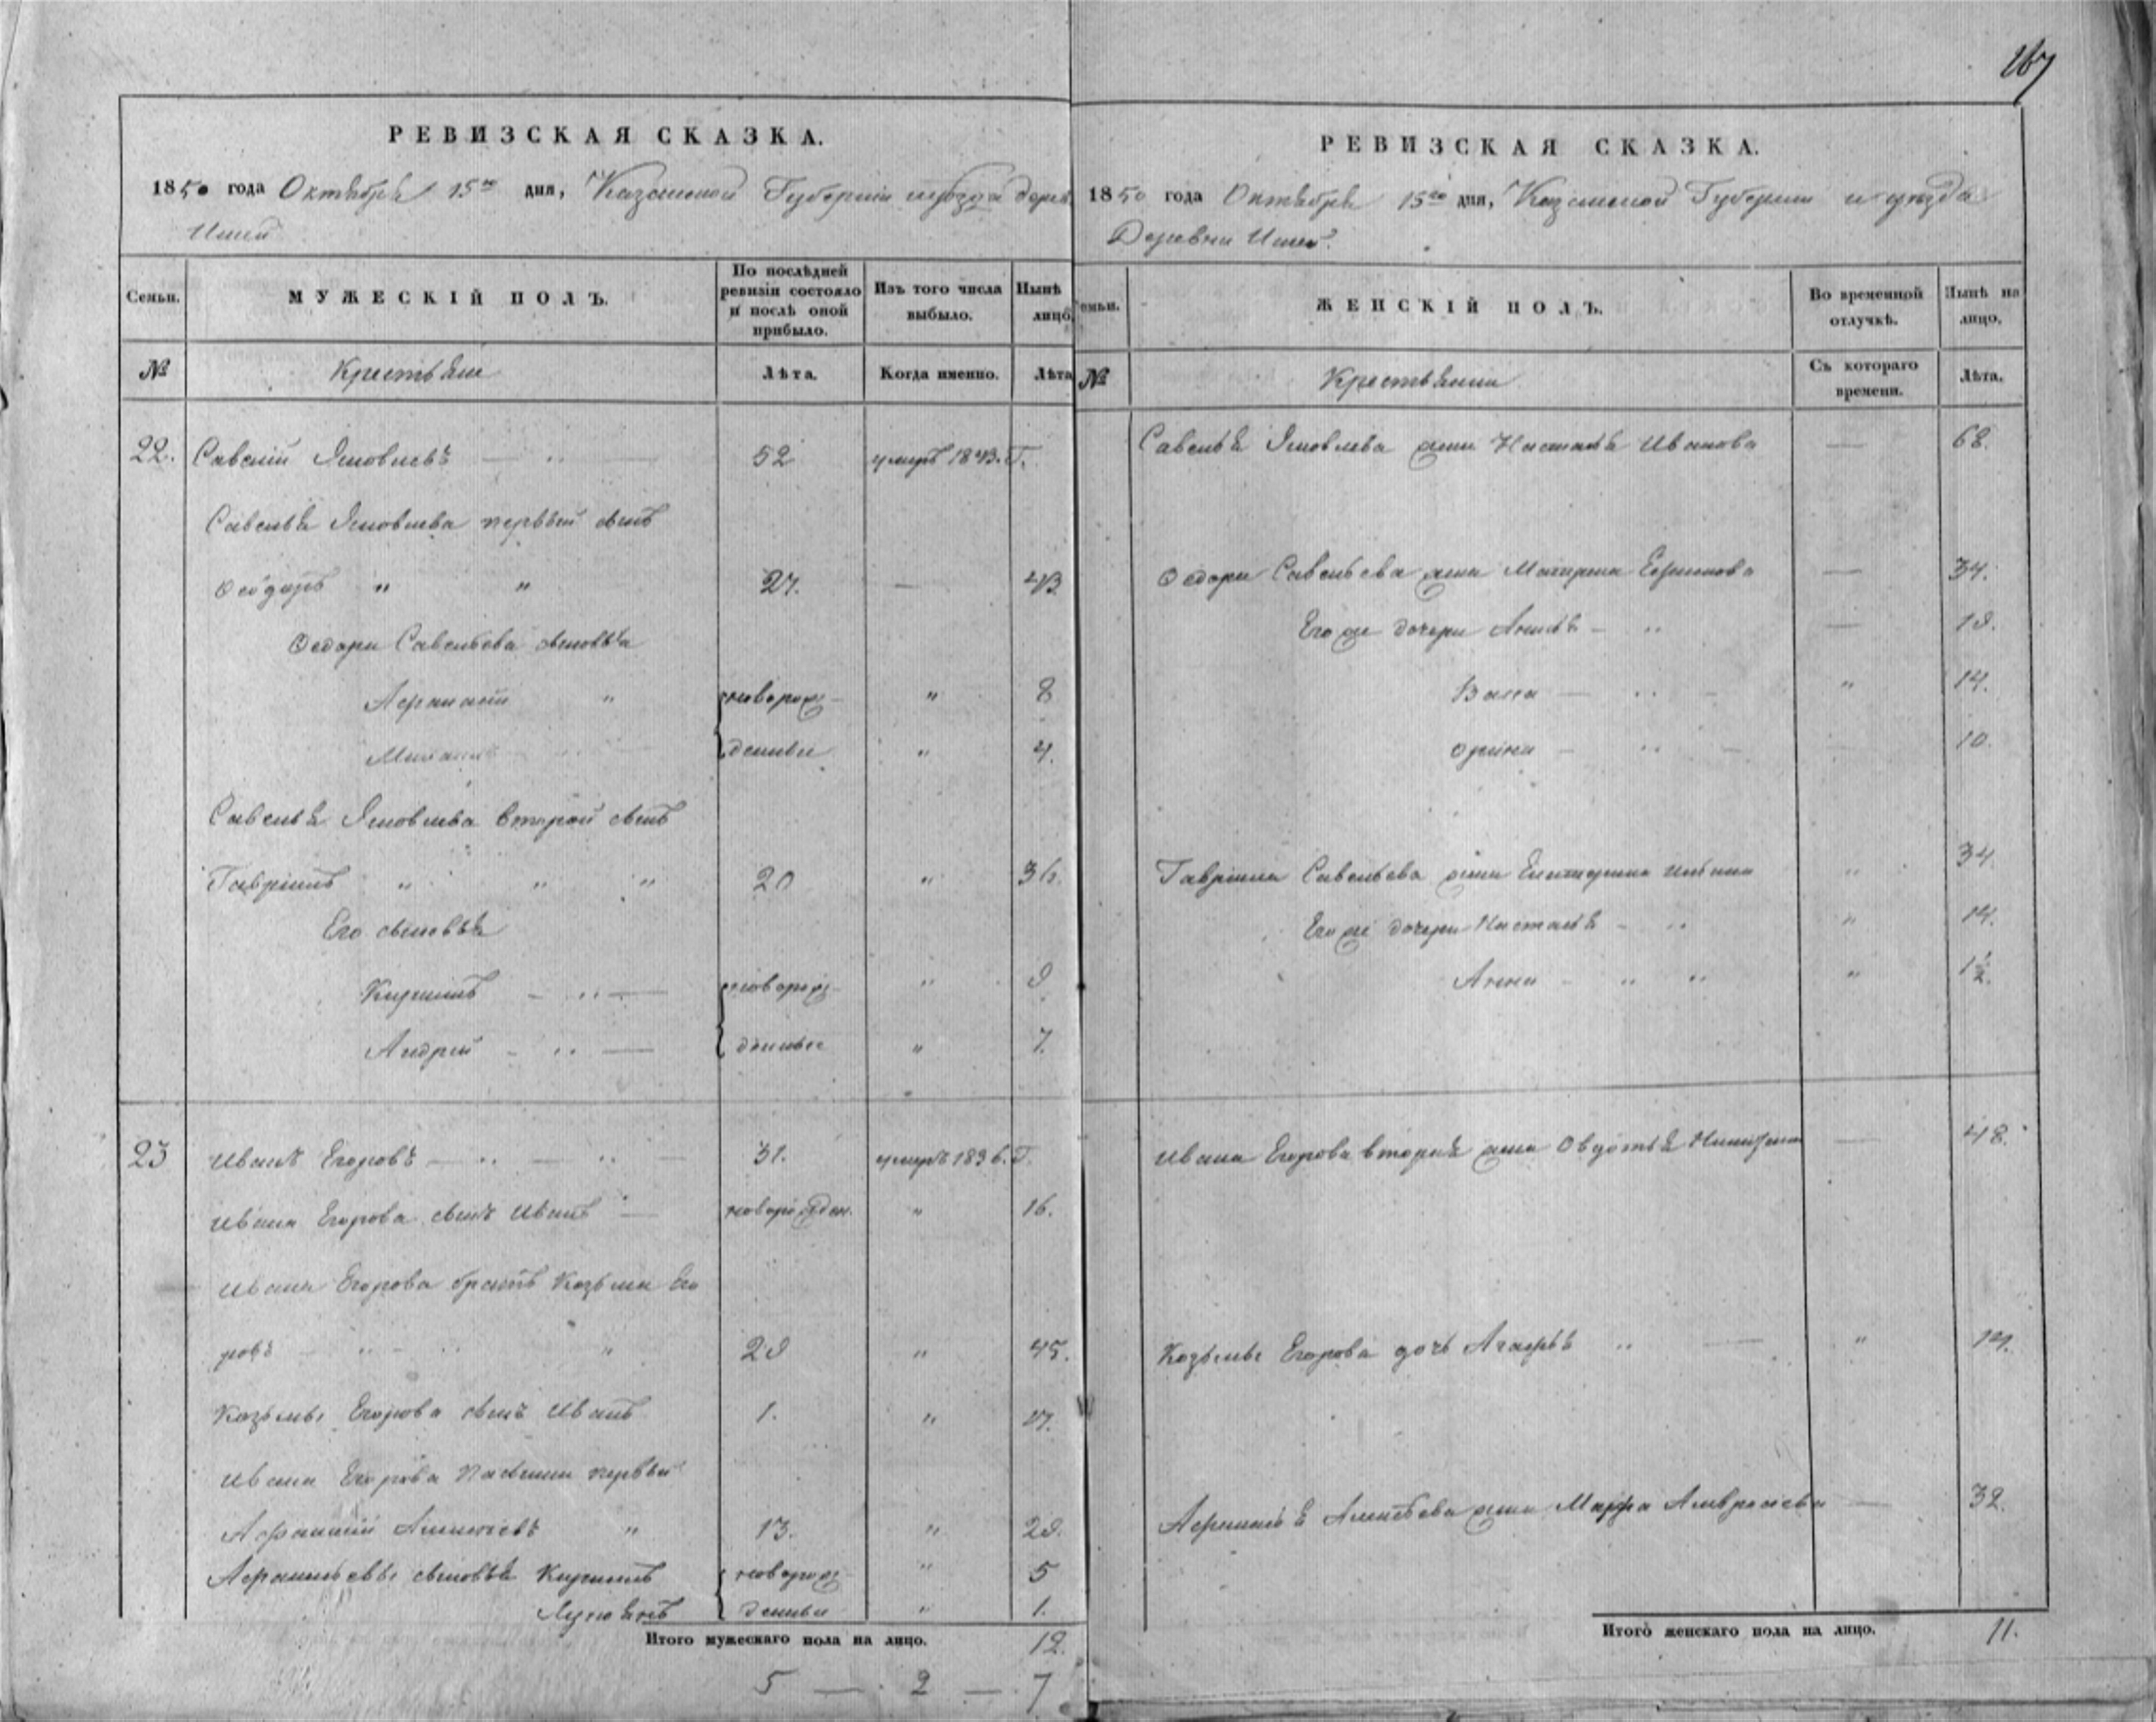 167
РЕВИЗСКАЯ СКАЗКА.
1850 года Октября 15го дня, Казанской Губернии и уезда дерев
Ишей
Семьи. МУЖЕСКІЙ ПОЛЪ. По послѣдней ревизіи состояло и послѣ оной прибыло. Изъ того числа выбыло. Нынѣ лицо
№ Крестьяне Лѣта. Когда именно. Лѣта
22. Савелій Яковлевъ — „ — 52 умеръ 1843. Г.
Савелья Яковлева первый сынъ
Ѳеодоръ „ „ 27. — 43
Ѳедора Савельева сыновья
Афанасій „ новорож- „ 8
денные „ 4.
Савелья Яковлева второй сынъ
Гаврiилъ „ „ „ 20 „ 36.
Его сыновья
Кирилъ — „ — новорож- „ 9
Андрей — „ — денные „ 7.
23 Иванъ Егоровъ — „ — „ — 31. умеръ 1836. Г.
Ивана Егорова сынъ Иванъ — новорожден. „ 16.
Ивана Егорова братъ Козьма Его
ровъ — „ — „ „ 29 „ 45.
Козьмы Егорова сынъ Иванъ 1. „ 17.
Ивана Егорова пасынки первый
13. „ 29.
сыновья Кирилъ новорож- „ 5
Лукоянъ денные „ 1.
Итого мужескаго пола на лицо. 12.
5 — 2 — 7
РЕВИЗСКАЯ СКАЗКА.
1850 года Октября 15го дня, Казанской Губернии и уезда
Деревни Ишей.
Семьи. ЖЕНСКІЙ ПОЛЪ. Во временной отлучкѣ. Нынѣ на лицо.
№ Крестьянки Съ котораго времени. Лѣта.
Савелья Яковлева жена Насталья Иванова — 68.
Ѳедора Савельева жена Матрена Ефимова — 34.
Его же дочери — „ — 19.
— „ — „ 14.
Орина — „ — 10.
Гаврiила Савельева жена Екатерина Ильина „ 34.
Его же дочери Насталья — „ „ 14.
Анна — „ „ „ 1½.
Ивана Егорова вторая жена Овдотья — 48.
Козьмы Егорова дочь Агафья „ — „ 14.
жена Марфа — 32.
Итого женскаго пола на лицо. 11.